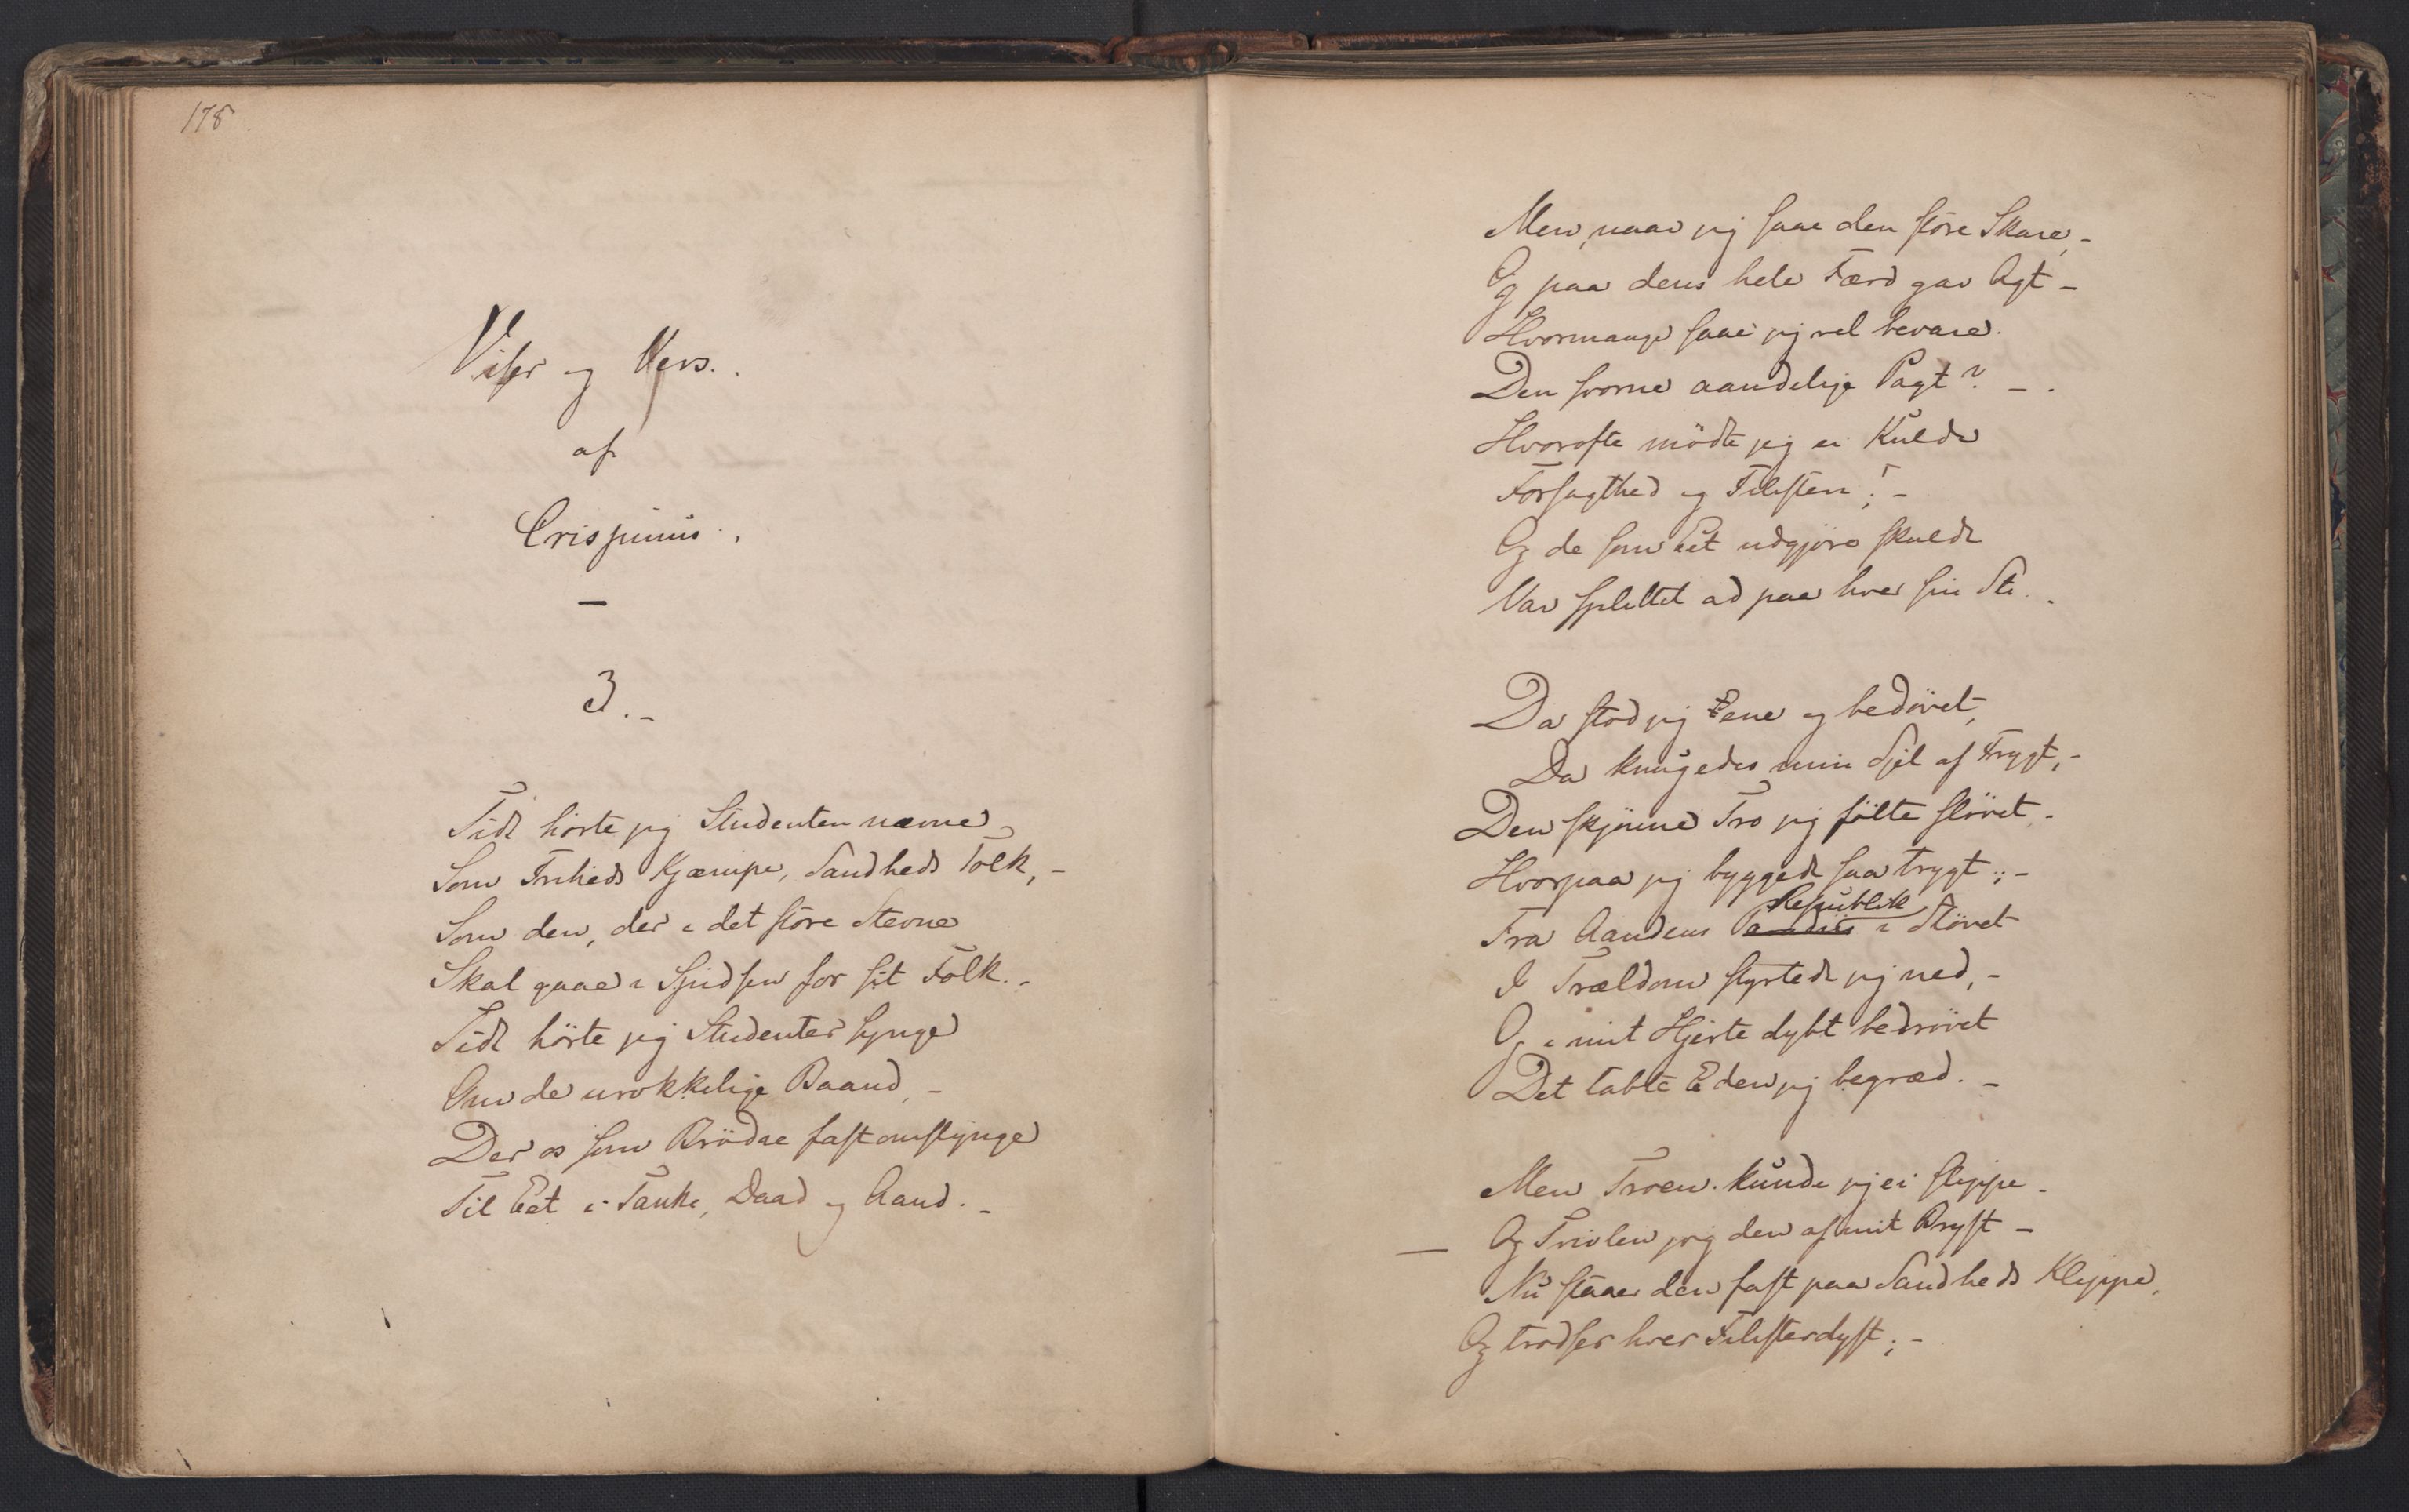 178
Viser og Vers.
af
Crispinus.
—
3. –
Tidt hörte jeg Studenten nævne
Som Friheds Kjæmpe, Sandheds Tolk, –
Som den, der i det store Stevne
Skal gaae i Spidsen for sit Folk. –
Tidt hörte jeg Studenter synge
Om de urokkelige Baand, –
Der os som Brödre fast omslynge
Til Eet i Tanke, Daad og Aand. –
Men, naar jeg saae den store Skare, –
Og paa dens hele Færd gav Agt –
Hvormange saae jeg vel bevare
Den svorne aandelige Pagt? –
Hvorofte mödte jeg ei Kulde
Forsagthed og Filisteri; –
Og de som eet udgjöre skulde
Var splittet ad paa hver sin Sti.
Da stod jeg Ene og bedövet,
Da knugedes min Sjel af Frygt, –
Den skjönne Tro jeg fölte slövet –
Hvorpaa jeg bygged saa trygt; –
Republik
Fra Aandens Paradiis i Stövet
I Trældom styrtede jeg ned, –
Og i mit Hjerte dybt bedrövet
Det tabte Eden jeg begræd. –
Men Troen kunde jeg ei slippe –
— Og Tvivlen jog den af mit Bryst –
Nu staaer den fast paa Sandheds Klippe,
Og trodser hver Filisterdyst; –